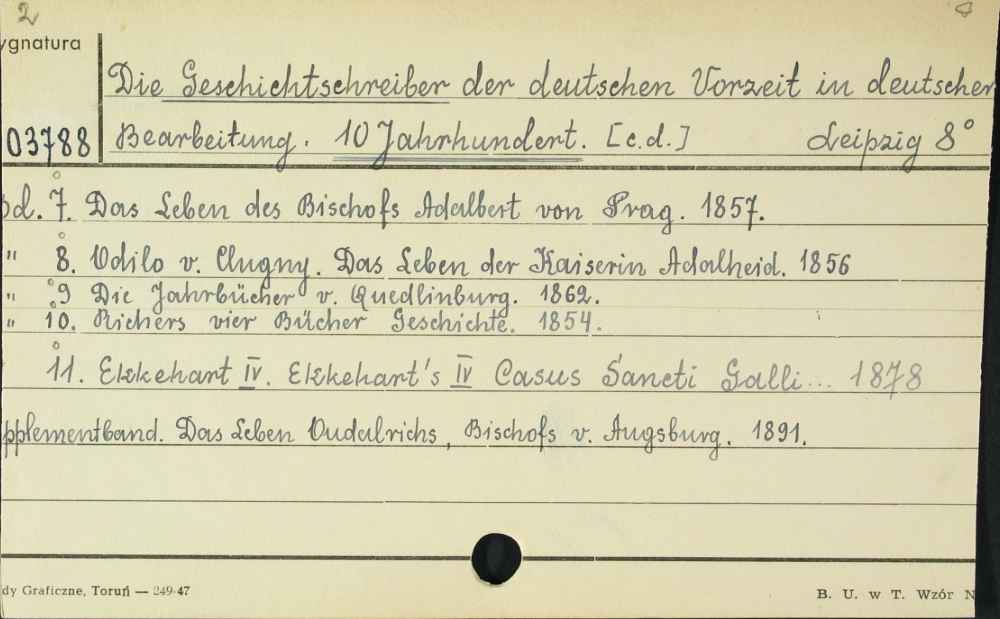 2
ygnatura
Die Geschichtschreiber der deutschen Vorzeit in deutscher
03788 Bearbeitung. 10 Jahrhundert. [c.d.] Leipzig 8°
bd. 7. Das Leben des Bischofs Adalbert von Prag. 1857.
" 8. Odilo v. Clugny. Das Leben der Kaiserin Adalheid. 1856
" 9 Die Jahrbücher v. Quedlinburg. 1862.
" 10. Richers vier Bücher Geschichte. 1854.
11. Ekkehart IV. Ekkehart's IV Casus Sancti Galli... 1878
pplementband. Das Leben Oudalrichs, Bischofs v. Augsburg. 1891.
dy Graficzne, Toruń — 249-47
B. U. w T. Wzór N